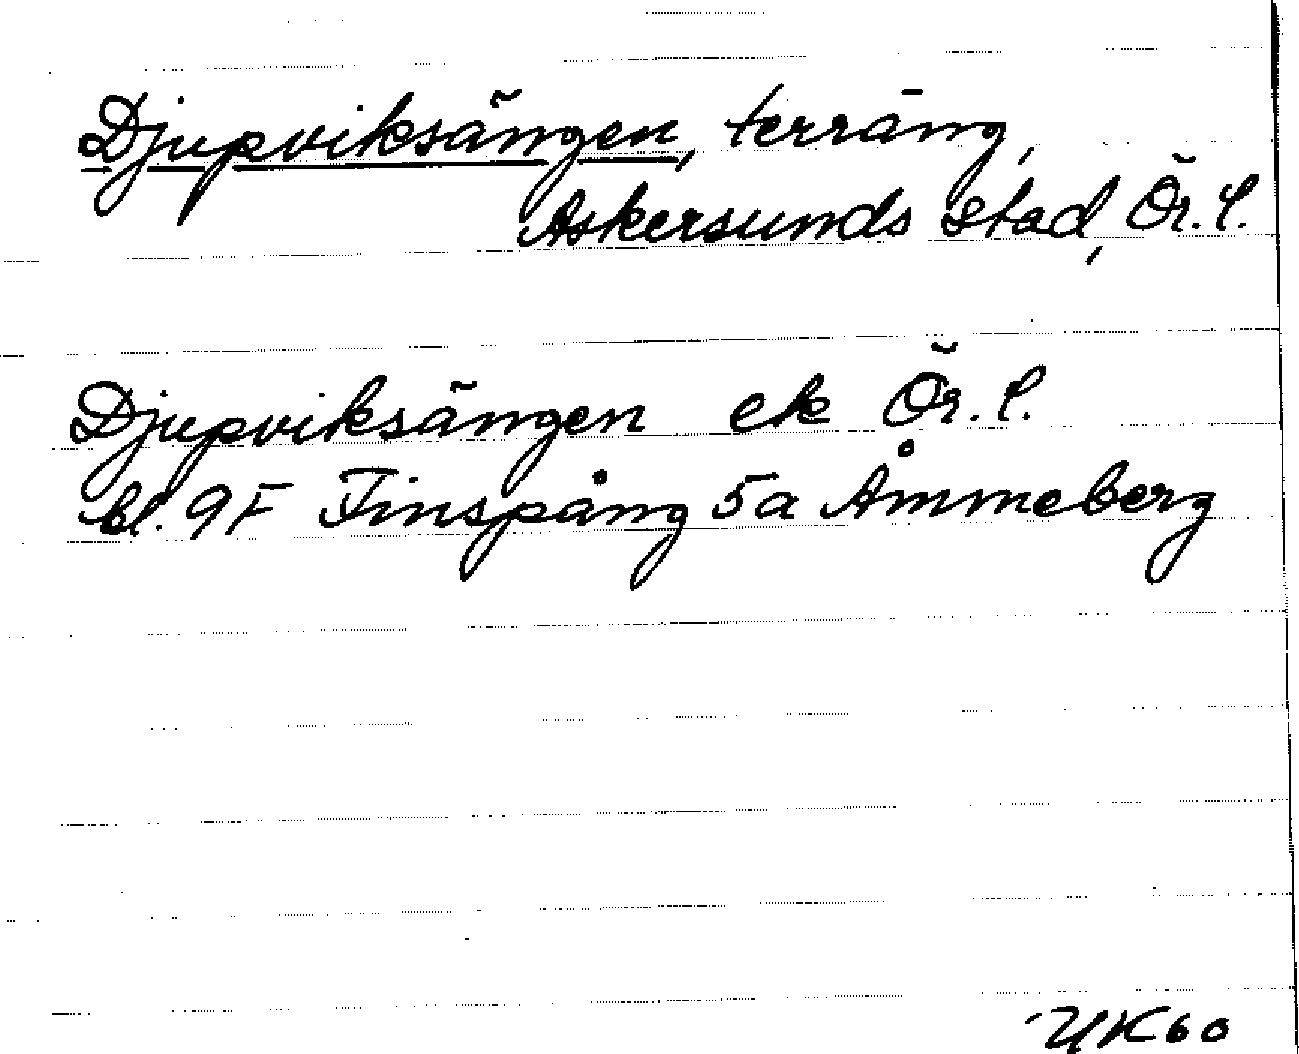 Djupviksängen, terräng,
Askersunds stad, Ör. l.
Djupviksängen ek Ör. l.
bl. 9F Finspång 5a Åmmeberg
UK60